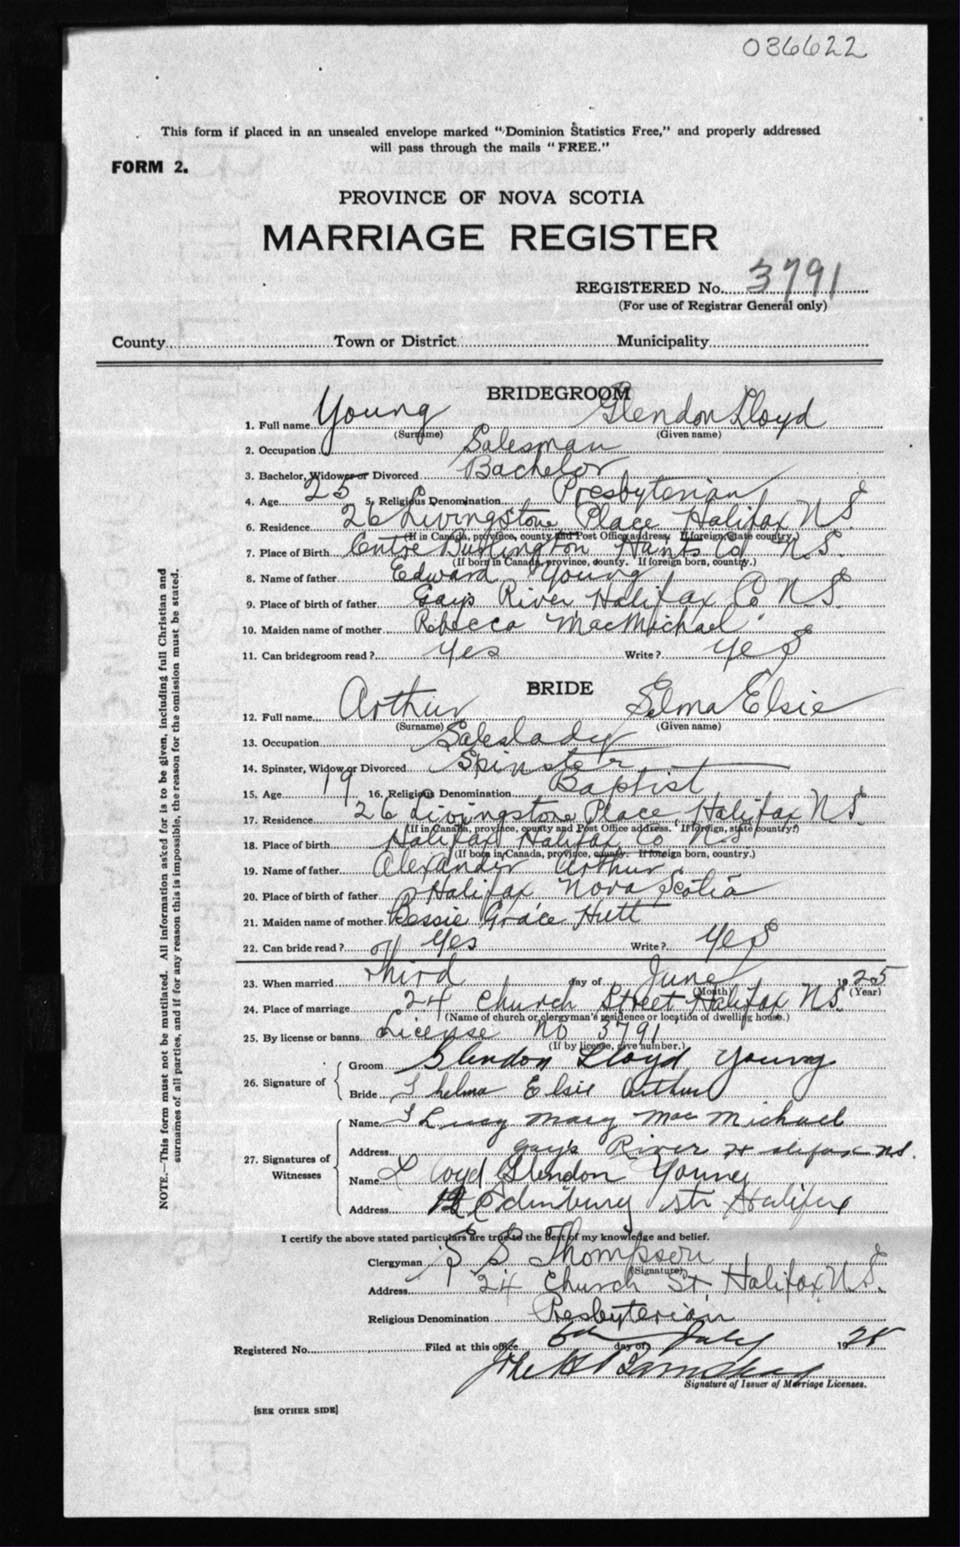 036622
This form if placed in an unsealed envelope marked "Dominion Statistics Free," and properly addressed
will pass through the mails "FREE."
FORM 2.
PROVINCE OF NOVA SCOTIA
MARRIAGE REGISTER
REGISTERED No. 3791
(For use of Registrar General only)
County Town or District Municipality
BRIDEGROOM
1. Full name Young Glendon Lloyd
(Surname) (Given name)
2. Occupation Salesman
3. Bachelor, Widower or Divorced Bachelor
4. Age 25 5. Religious Denomination Presbyterian
6. Residence 26 Livingstone Place Halifax N S.
(If in Canada, province, county and Post Office address. If foreign, state country)
7. Place of Birth Centre Burlington Hants Co N.S.
(If born in Canada, province, county. If foreign born, country.)
8. Name of father Edward Young
9. Place of birth of father Gays River Halifax Co N.S.
10. Maiden name of mother Rebecca MacMichael
11. Can bridegroom read? Yes Write? Yes
BRIDE
12. Full name Arthur Selma Elsie
(Surname) (Given name)
13. Occupation Saleslady
14. Spinster, Widow or Divorced Spinster
15. Age 19 16. Religious Denomination Baptist
17. Residence 26 Livingstone Place, Halifax N S.
(If in Canada, province, county and Post Office address. If foreign, state country.)
18. Place of birth Halifax Halifax Co N S
(If born in Canada, province, county. If foreign born, country.)
19. Name of father Alexander Arthur
20. Place of birth of father Halifax Nova Scotia
21. Maiden name of mother Bessie Grace Hutt
22. Can bride read? Yes Write? Yes
23. When married Third day of June 1925
(Month) (Year)
24. Place of marriage 24 Church Street Halifax N S.
(Name of church or clergyman's residence or location of dwelling house.)
25. By license or banns License no 3791
(If by license, give number.)
26. Signature of Groom Glendon Lloyd Young
Bride Thelma Elsie Arthur
27. Signatures of Witnesses Name Mary Mac Michael
Address Gays River Halifax N.S.
Name Lloyd Glendon Young
Address Edinburg Str Halifax
I certify the above stated particulars are true to the best of my knowledge and belief.
Clergyman S S Thompson
(Signature)
Address 24 Church St, Halifax, N S.
Religious Denomination Presbyterian
Registered No. Filed at this office day of July 19
Signature of Issuer of Marriage Licenses.
[SEE OTHER SIDE]
NOTE.—This form must not be mutilated. All information asked for is to be given, including full Christian and
surnames of all parties, and if for any reason this is impossible, the reason for the omission must be stated.